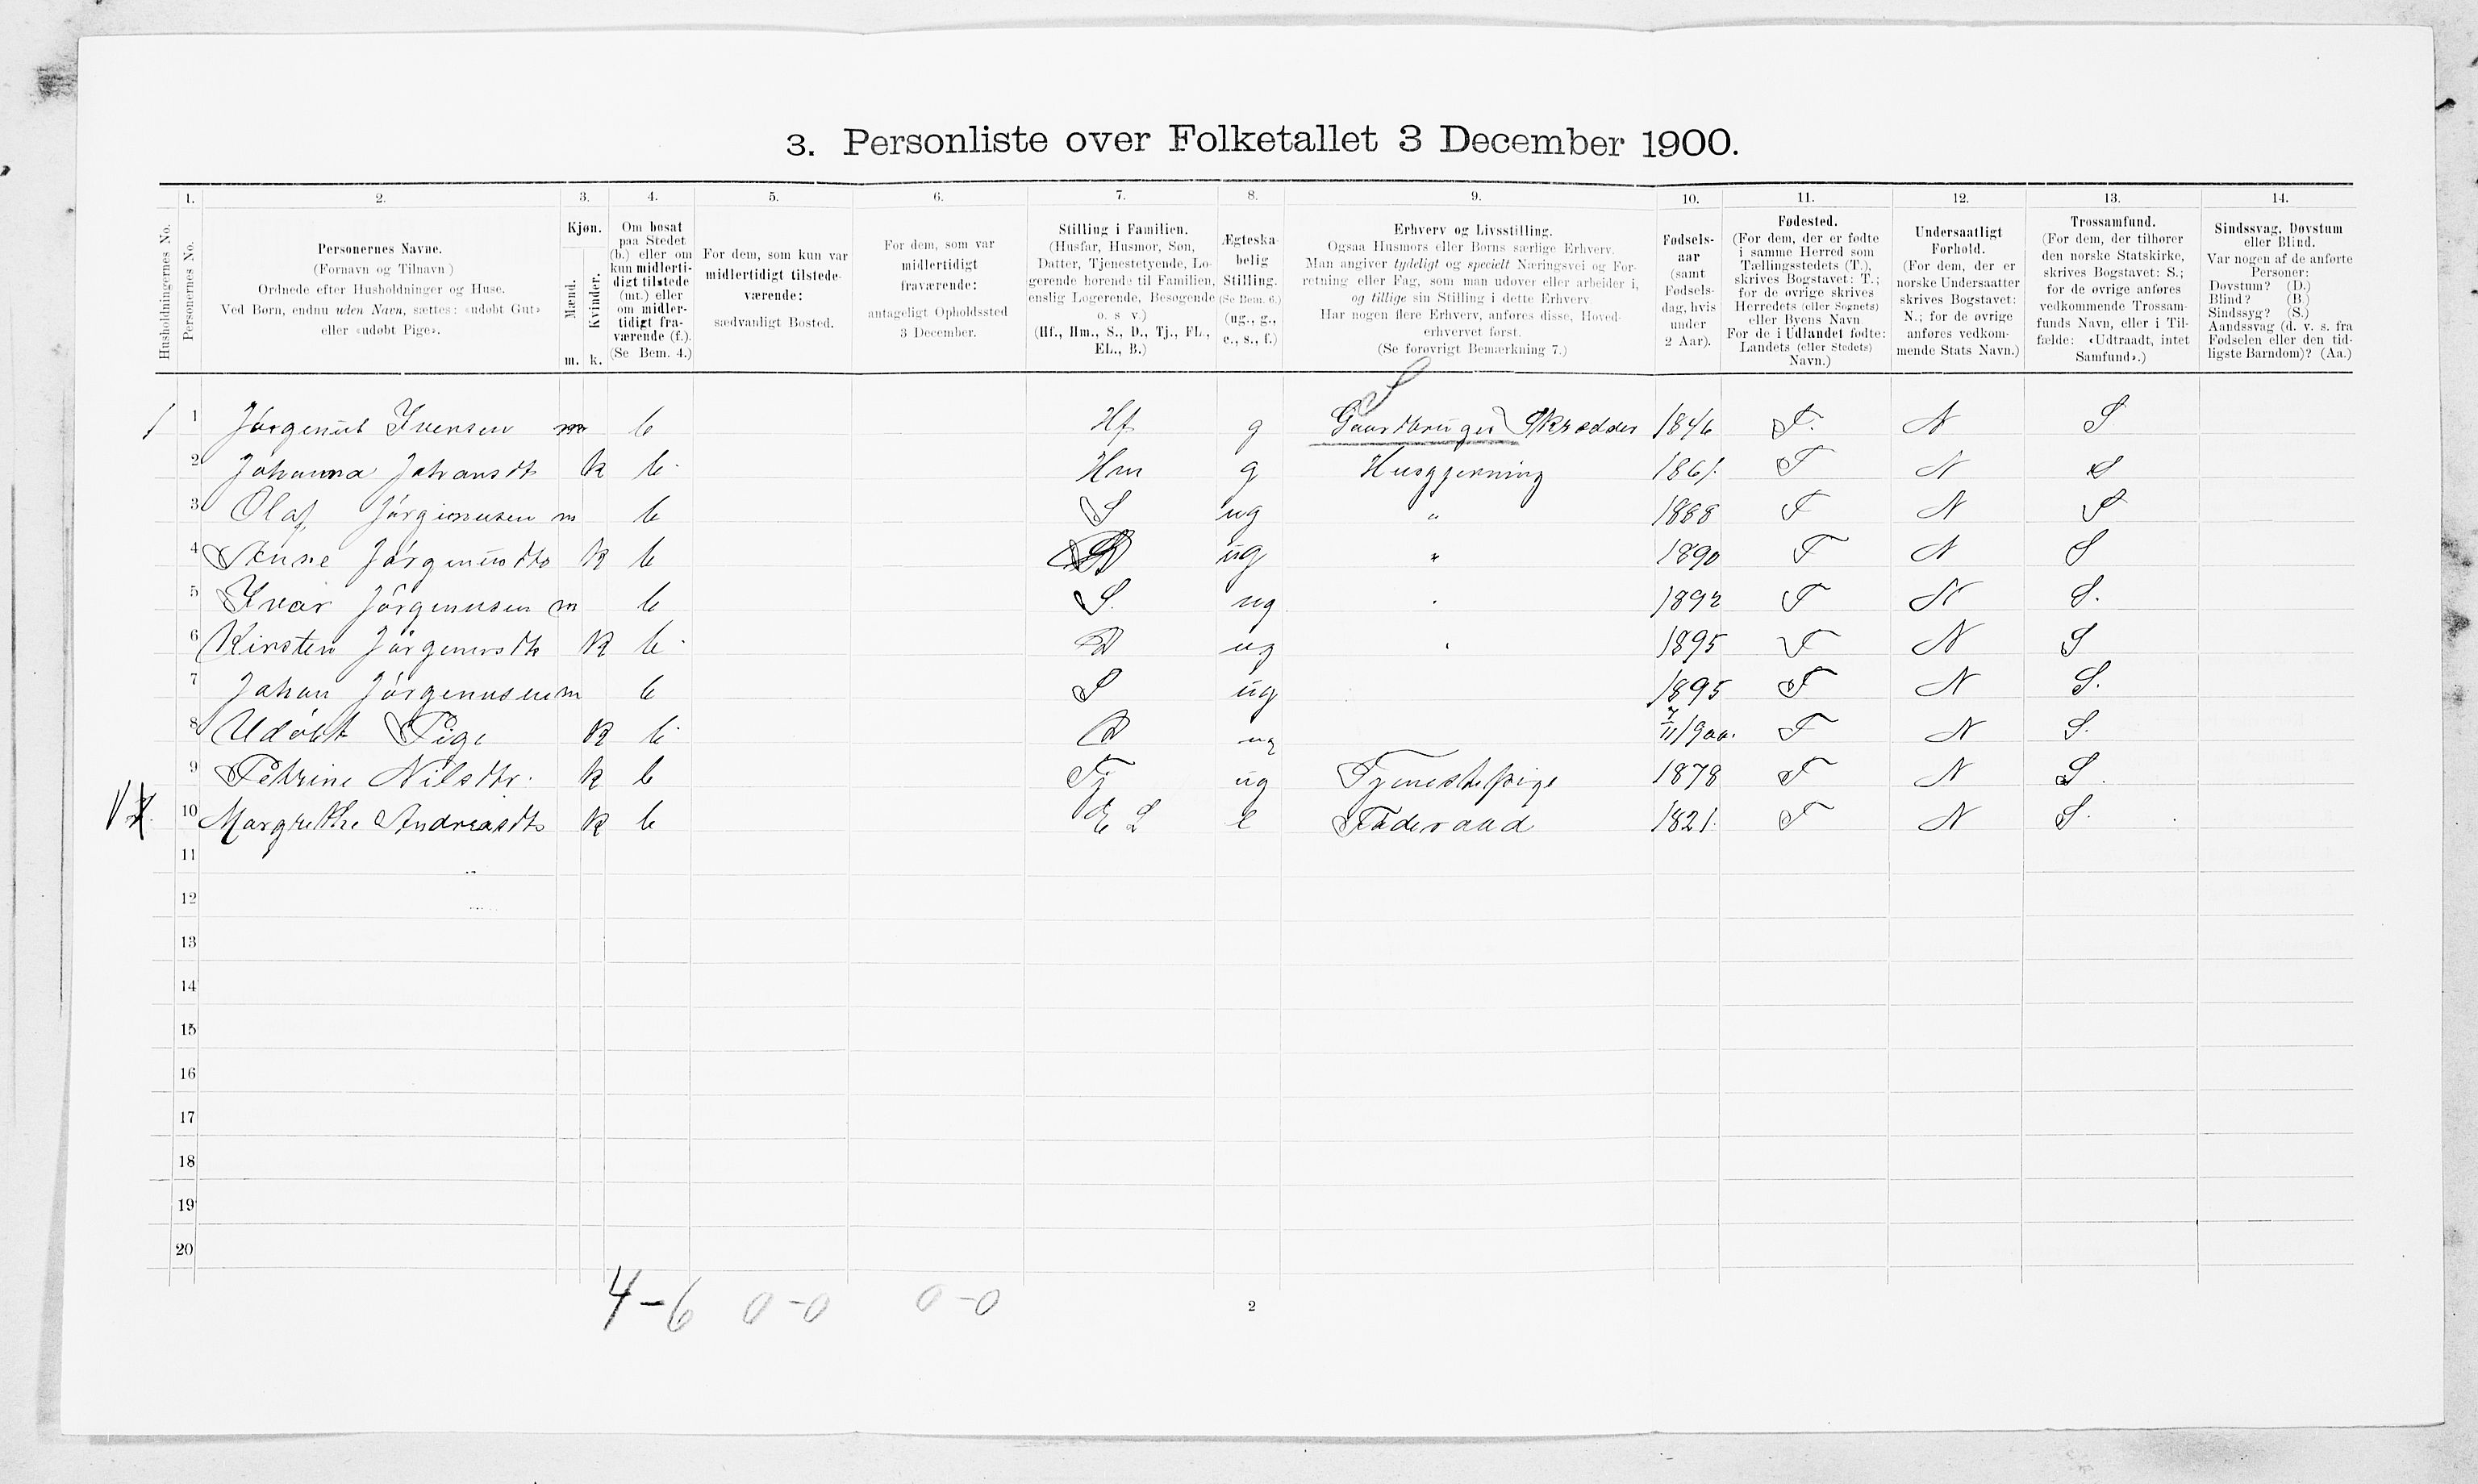 3. Personliste over Folketallet 3 December 1900.
Husholdningernes No.
1. Personernes No.
2. Personernes Navne.
(Fornavn og Tilnavn)
Ordnede efter Husholdninger og Huse.
Ved Børn, endnu uden Navn, sættes: «udøbt Gut»
eller «udøbt Pige».
3. Kjøn.
Mænd. Kvinder.
m. k.
4. Om bosat
paa Stedet
(b.) eller om
kun midlerti-
digt tilstede
(mt.) eller
om midler-
tidigt fra-
værende (f.).
(Se Bem. 4.)
5. For dem, som kun var
midlertidigt tilstede-
værende:
sædvanligt Bosted.
6. For dem, som var
midlertidigt
fraværende:
antageligt Opholdssted
3 December.
7. Stilling i Familien.
(Husfar, Husmor, Søn,
Datter, Tjenestetyende, Lo-
gerende hørende til Familien,
enslig Logerende, Besøgende
o. s. v.)
(Hf., Hm., S., D., Tj., FL.,
EL., B.)
8. Ægteska-
belig
Stilling.
(Se Bem. 6.)
(ug., g.,
e., s., f.)
9. Erhverv og Livsstilling.
Ogsaa Husmors eller Børns særlige Erhverv.
Man angiver tydeligt og specielt Næringsvei og For-
retning eller Fag, som man udøver eller arbeider i,
og tillige sin Stilling i dette Erhverv
Har nogen flere Erhverv, anføres disse, Hoved-
erhvervet først.
(Se forøvrigt Bemærkning 7.)
10. Fødsels-
aar
(samt
Fødsels-
dag, hvis
under
2 Aar).
11. Fødested.
(For dem, der er fødte
i samme Herred som
Tællingsstedets (T.),
skrives Bogstavet: T.;
for de øvrige skrives
Herredets (eller Sognets)
eller Byens Navn
For de i Udlandet fødte:
Landets (eller Stedets)
Navn.)
12. Undersaatligt
Forhold.
(For dem, der er
norske Undersaatter
skrives Bogstavet:
N.; for de øvrige
anføres vedkom-
mende Stats Navn.)
13. Trossamfund.
(For dem, der tilhører
den norske Statskirke,
skrives Bogstavet: S.;
for de øvrige anføres
vedkommende Trossam-
funds Navn, eller i Til-
fælde: «Udtraadt, intet
Samfund».)
14. Sindssvag, Døvstum
eller Blind.
Var nogen af de anførte
Personer:
Døvstum? (D.)
Blind? (B.)
Sindssyg? (S.)
Aandssvag (d. v. s. fra
Fødselen eller den tid-
ligste Barndom)? (Aa.)
1 Iversen m b Hf g Gaardbruger Skrædder 1846 T. N S
2 Johanna Johansdt k b Hm g Husgjerning 1861 T N S
3 Olaf Jørginusen m b S ug " 1888 T N S
4 Anne Jørginusdtr k b D ug " 1890 T N S
5 Ivar Jørginusen m b S. ug 1892 T N S.
6 Kirsten Jørginusdtr k b D ug 1895 T N S
7 Johan Jørginusen m b S ug 1895 T N S.
8 Udøbt Pige k b D ug 7/11 1900. T N S.
9 Petrine Nilsdtr. k b Tj ug Tjenestepige 1878 T N S.
10 Margrethe Andreasdtr k b E L e Føderaad 1821. T N S.
11
12
13
14
15
16
17
18
19
20
4-6 0-0 0-0
2